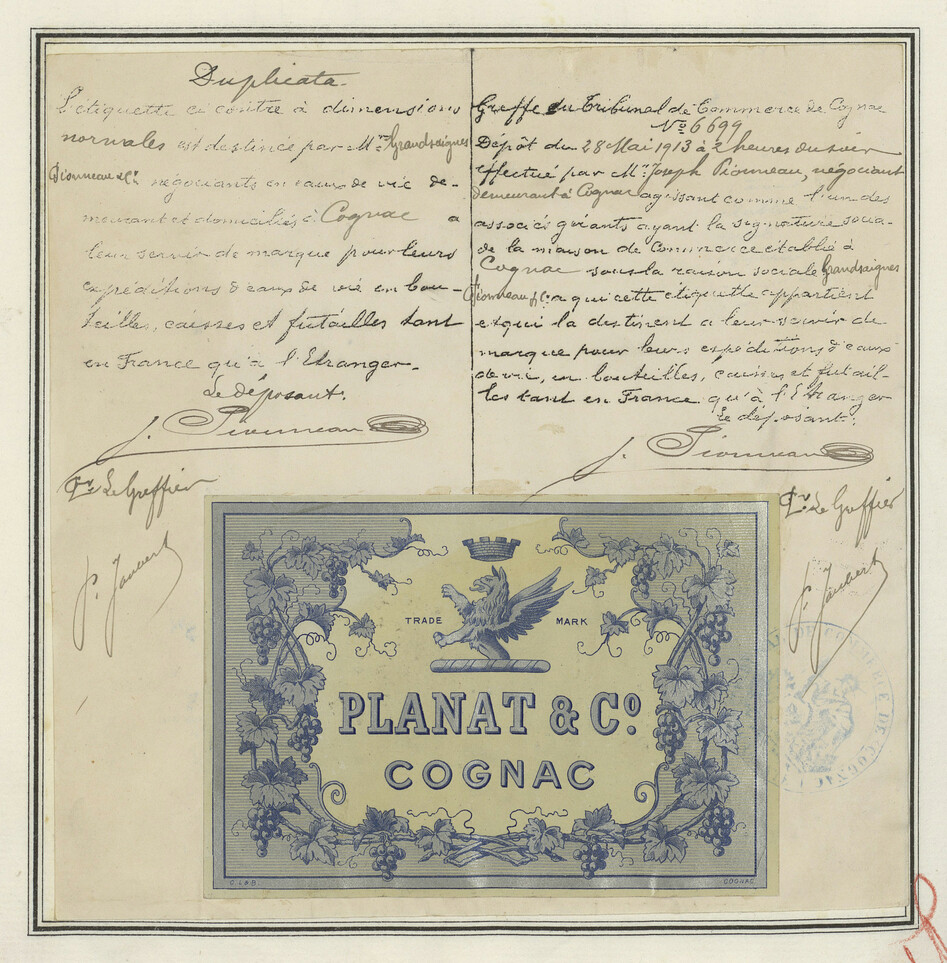 Duplicata
L'étiquette ci contre à dimensions
normales est destinée par Mrs Grandsaignes
Pionneau & Cie négociants en eaux de vie de-
meurant et domiciliés à Cognac a
leur servir de marque pour leurs
expéditions d'eaux de vie en bou-
teilles, caisses et futailles tant
en France qu'à l'Etranger.
Le déposant.
J. Pionneau
Pr Le Greffier
P. Jaubert
Greffe du Tribunal de Commerce de Cognac
No 6699
Dépôt du 28 Mai 1913 à 2 heures du soir
effectué par Mr Joseph Pionneau, négociant
demeurant à Cognac agissant comme l'un des
associés gérants ayant la signature socia-
de la maison de Commerce établie à
Cognac sous la raison sociale Grandsaignes
Pionneau & Cie a qui cette étiquette appartient
et qui la destinent a leur servir de
marque pour leurs expéditions d'eaux
de vie, en bouteilles, caisses et futail-
les tant en France qu'à l'Etranger
Le déposant.
J. Pionneau
Pr Le Greffier
P. Jaubert
TRADE MARK
PLANAT & Co.
COGNAC
C. L & B. COGNAC
DE COMMERCE DE COGNAC